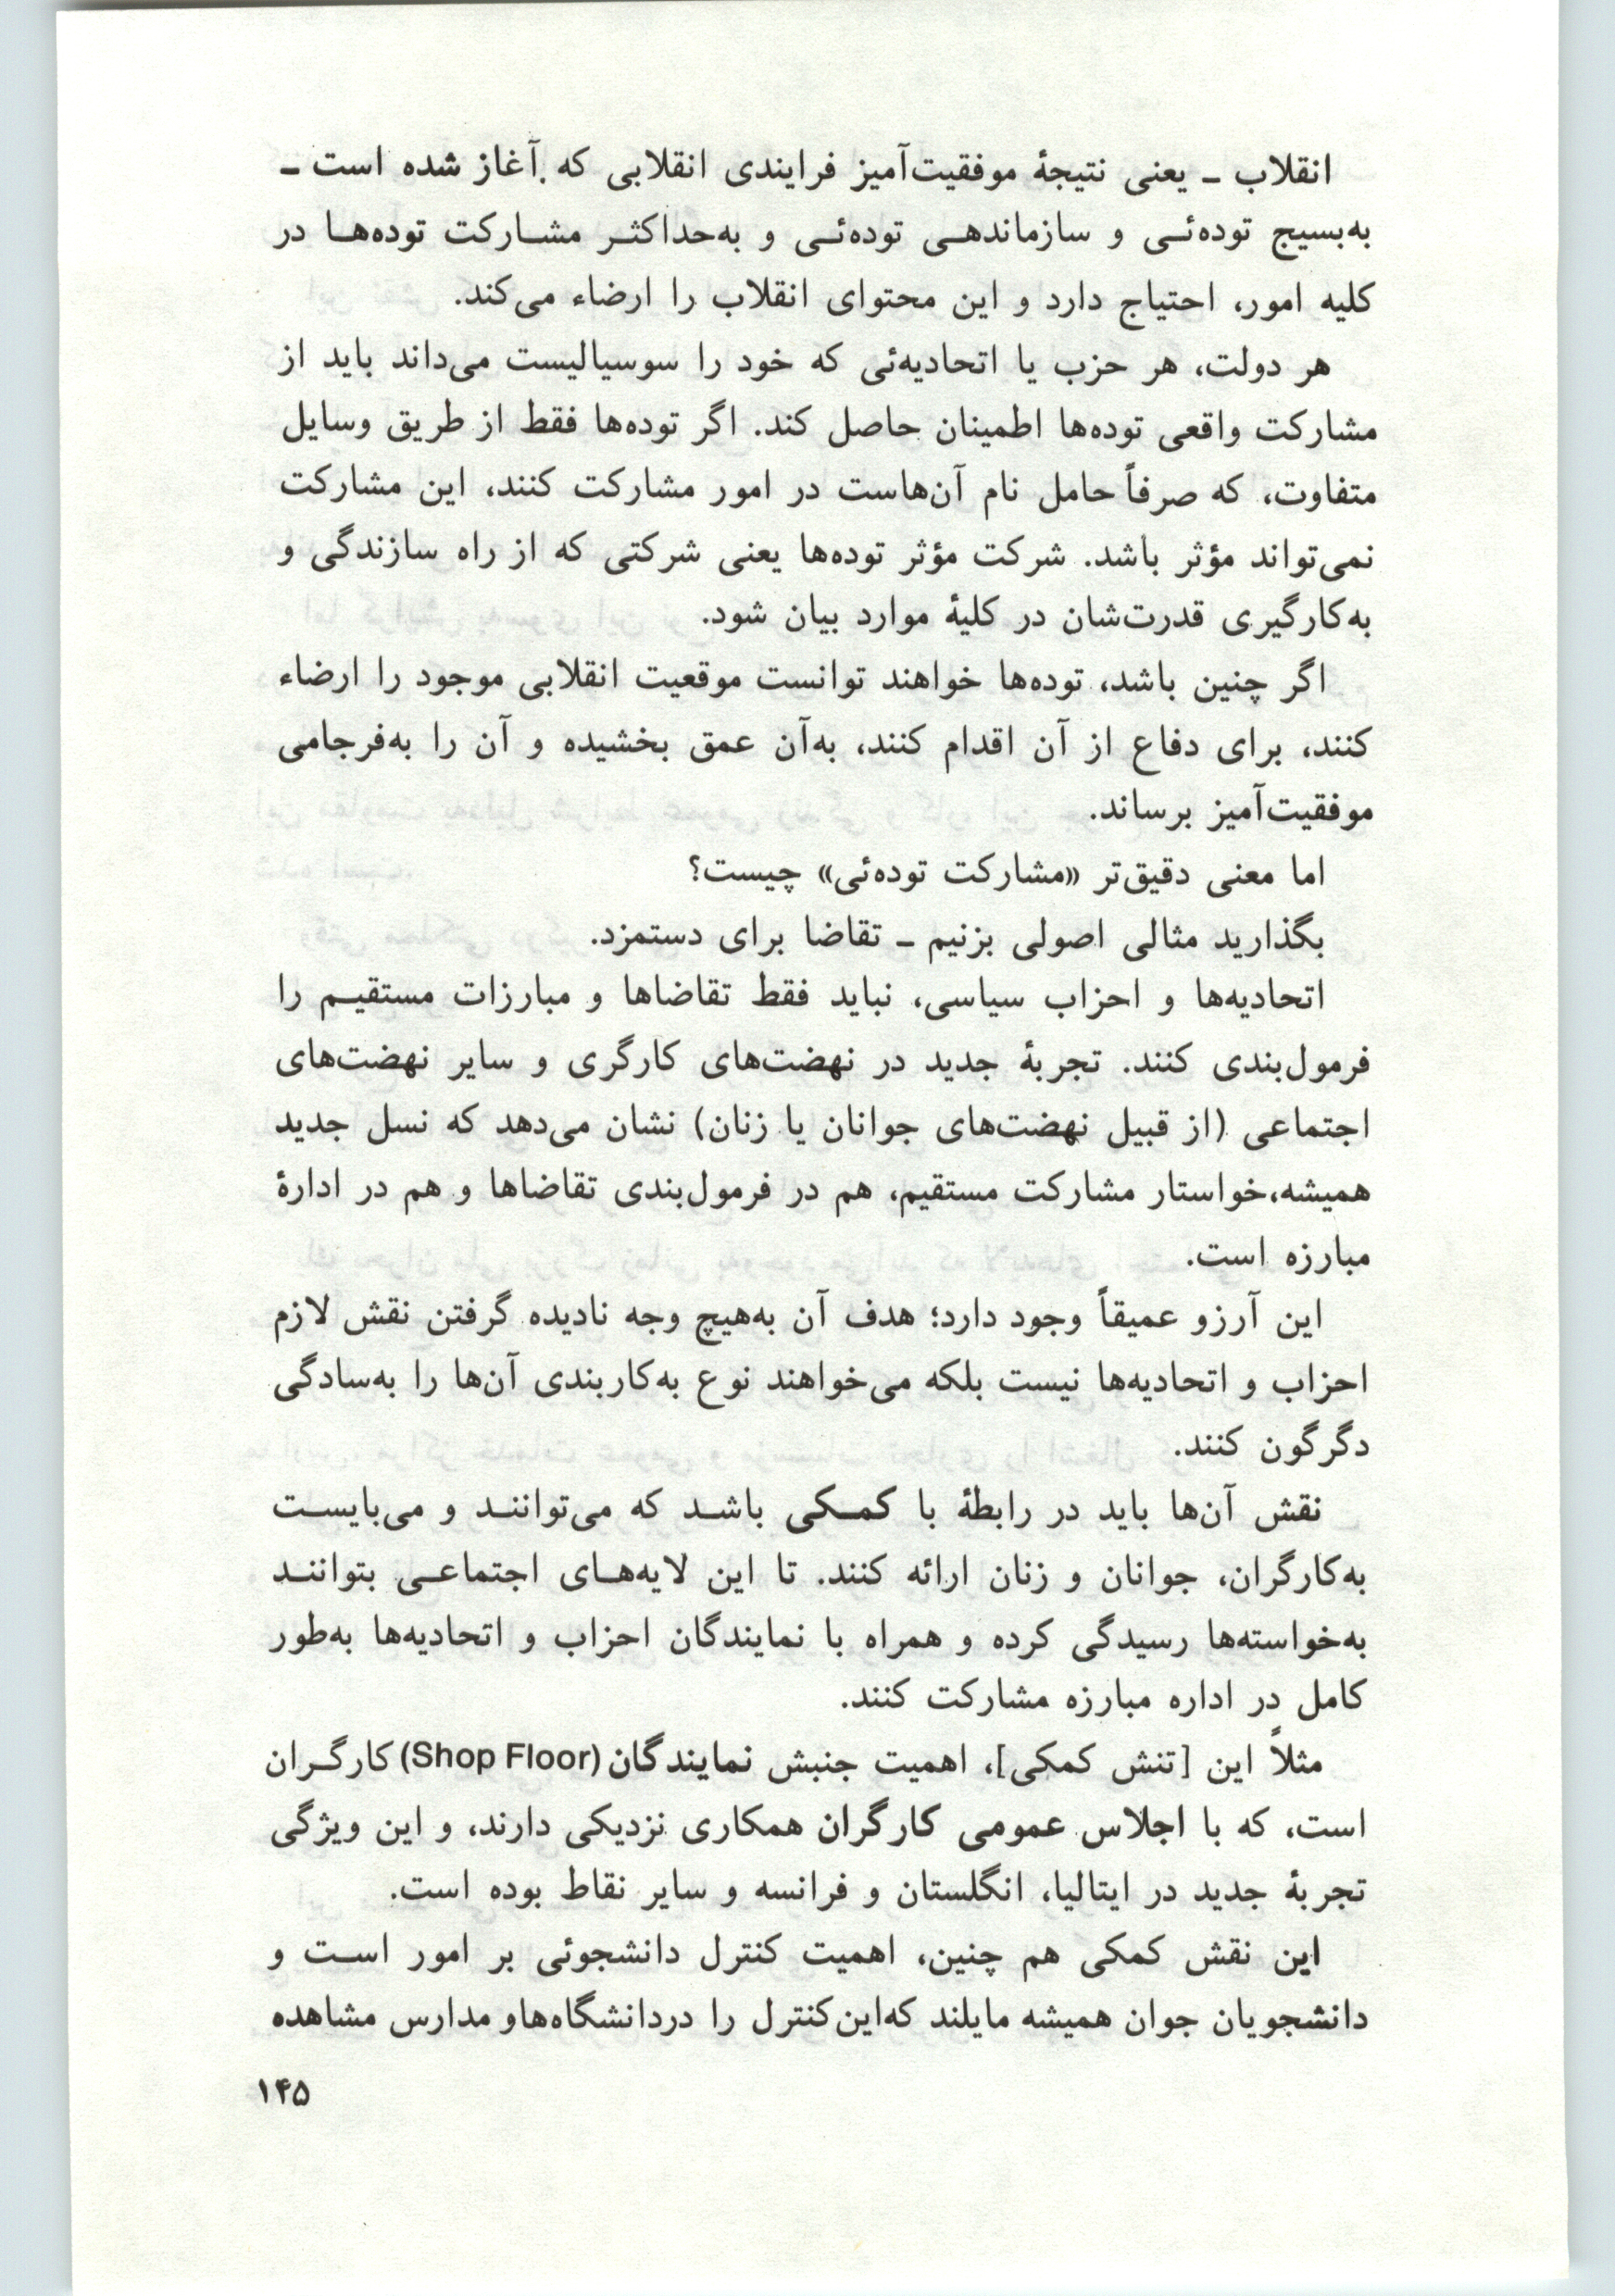 انقلاب ـ یعنی نتیجهٔ موفقیت‌آمیز فرایندی انقلابی که آغاز شده است ـ
به‌بسیج توده‌ئـی و سازماندهـی توده‌ئـی و به‌حداکثـر مشـارکت توده‌هـا در
کلیه امور، احتیاج دارد و این محتوای انقلاب را ارضاء می‌کند.
هر دولت، هر حزب یا اتحادیه‌ئی که خود را سوسیالیست می‌داند باید از
مشارکت واقعی توده‌ها اطمینان حاصل کند. اگر توده‌ها فقط از طریق وسایل
متفاوت، که صرفاً حامل نام آن‌هاست در امور مشارکت کنند، این مشارکت
نمی‌تواند مؤثر باشد. شرکت مؤثر توده‌ها یعنی شرکتی که از راه سازندگی و
به‌کارگیری قدرت‌شان در کلیهٔ موارد بیان شود.
اگر چنین باشد، توده‌ها خواهند توانست موقعیت انقلابی موجود را ارضاء
کنند، برای دفاع از آن اقدام کنند، به‌آن عمق بخشیده و آن را به‌فرجامی
موفقیت‌آمیز برساند.
اما معنی دقیق‌تر «مشارکت توده‌ئی» چیست؟
بگذارید مثالی اصولی بزنیم ـ تقاضا برای دستمزد.
اتحادیه‌ها و احزاب سیاسی، نباید فقط تقاضاها و مبارزات مستقیـم را
فرمول‌بندی کنند. تجربهٔ جدید در نهضت‌های کارگری و سایر نهضت‌های
اجتماعی (از قبیل نهضت‌های جوانان یا زنان) نشان می‌دهد که نسل جدید
همیشه،خواستار مشارکت مستقیم، هم در فرمول‌بندی تقاضاها و هم در ادارهٔ
مبارزه است.
این آرزو عمیقاً وجود دارد؛ هدف آن به‌هیچ وجه نادیده گرفتن نقش لازم
احزاب و اتحادیه‌ها نیست بلکه می‌خواهند نوع به‌کاربندی آن‌ها را به‌سادگی
دگرگون کنند.
نقش آن‌ها باید در رابطهٔ با کمـکی باشـد که می‌تواننـد و می‌بایسـت
به‌کارگران، جوانان و زنان ارائه کنند. تا این لایه‌هـای اجتماعـی بتواننـد
به‌خواسته‌ها رسیدگی کرده و همراه با نمایندگان احزاب و اتحادیه‌ها به‌طور
کامل در اداره مبارزه مشارکت کنند.
مثلاً این [تنش کمکی]، اهمیت جنبش نمایندگان (Shop Floor) کارگـران
است، که با اجلاس عمومی کارگران همکاری نزدیکی دارند، و این ویژگی
تجربهٔ جدید در ایتالیا، انگلستان و فرانسه و سایر نقاط بوده است.
این نقش کمکی هم چنین، اهمیت کنترل دانشجوئی بر امور اسـت و
دانشجویان جوان همیشه مایلند که‌این‌کنترل را دردانشگاه‌هاو مدارس مشاهده
۱۴۵